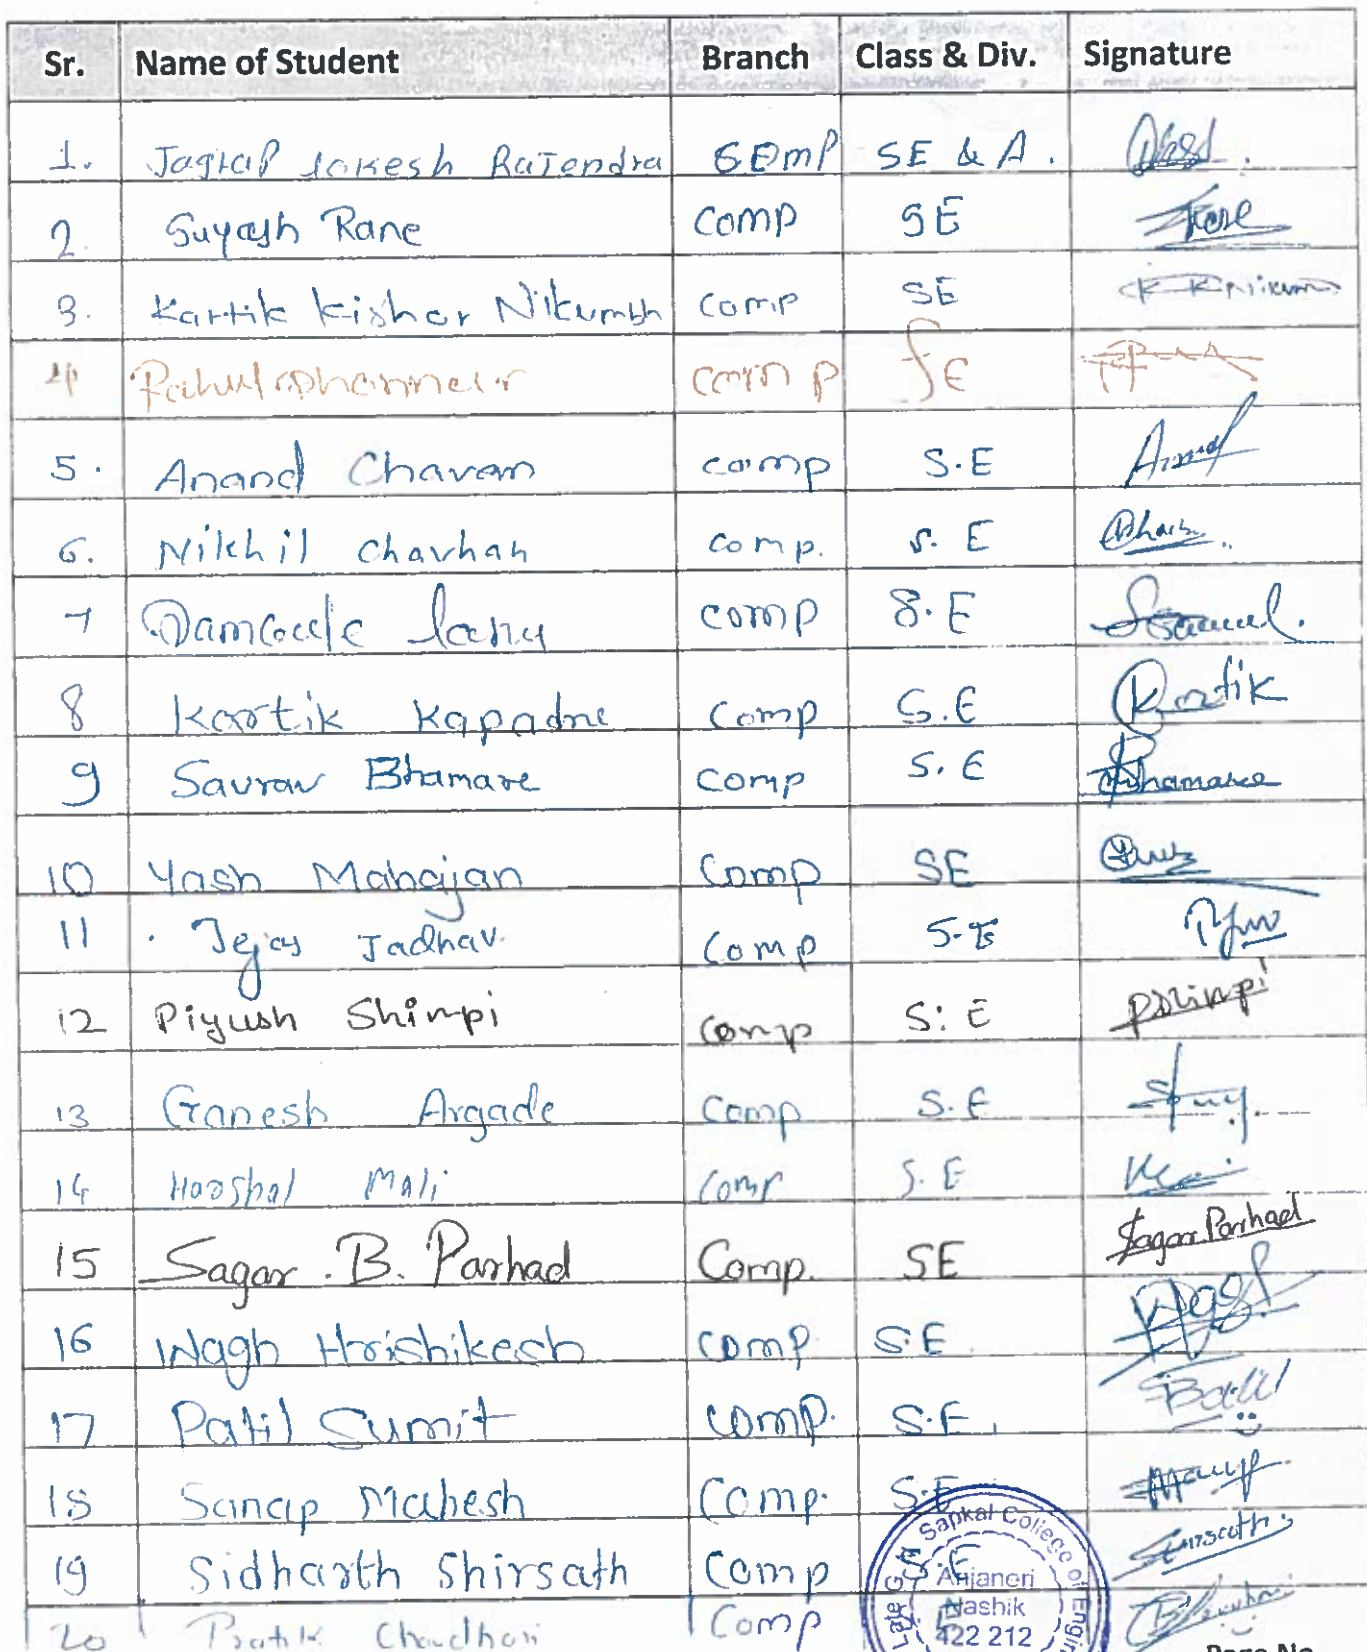 Sr. Name of Student Branch Class & Div. Signature
1. Jagtap lokesh Rajendra comp SE & A.
2. Suyash Rane comp SE
3. Kartik Kishor Nikumbh comp SE
4 Rahul comp SE
5. Anand Chavan comp S.E Anand
6. Nikhil Chavhan comp. S.E
7 comp S.E
8 Kartik Kapadne Comp S.E Kartik
9 Saurav Bhamare comp S.E Bhamare
10 Yash Mahajan Comp SE
11 Tejas Jadhav. Comp S.E
12 Piyush Shimpi comp S.E PShimpi
13 Ganesh Argade Comp S.E
14 Harshal Mali Comp S.E
15 Sagar .B. Parhad Comp. SE Sagar Parhad
16 Wagh Hrishikesh comp. S.E
17 Patil Sumit comp. S.E.
18 Sanap Mahesh Comp. S.E
19 Sidharth Shirsath Comp S.E
20 Pratik Chaudhari Comp
Late G. N. Sapkal College of Engi
Anjaneri
Nashik
422 212
Page No